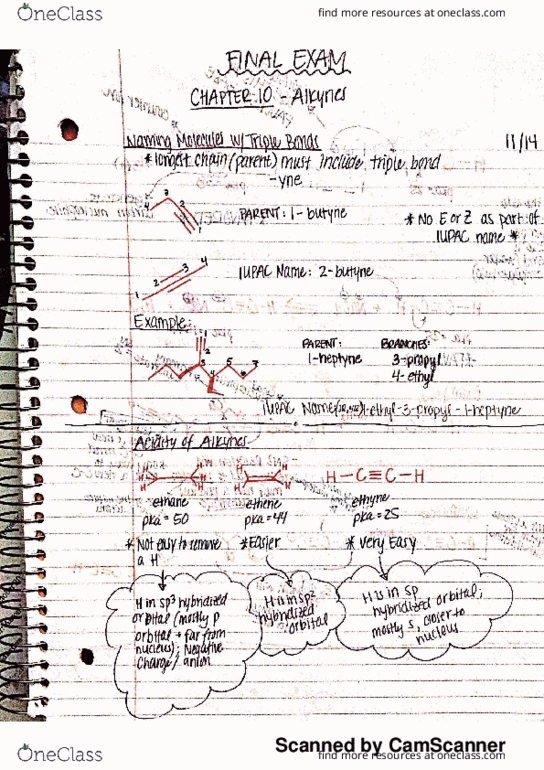 OneClass
find more resources at oneclass.com
FINAL EXAM
CHAPTER 10 - Alkynes
11/14
Naming Molecules w/ Triple Bonds
* longest chain (parent) must include triple bond
-yne
4 3 2 1
PARENT: 1-butyne
* No E or Z as part of
IUPAC name *
1 2 3 4
IUPAC Name: 2-butyne
Example:
1 2 3 4 5 6 7
PARENT:
1-heptyne
BRANCHES:
3-propyl
4-ethyl
IUPAC Name: 4-ethyl-3-propyl-1-heptyne
Acidity of Alkynes
H-C≡C-H
ethane
pka = 50
ethene
pka = 44
ethyne
pka = 25
* Not easy to remove
a H
* Easier
* very Easy
H in sp3 hybridized
orbital (mostly p
orbital + far from
nucleus); Negative
charge / anion
H is in sp2
hybridized
orbital
H is in sp
hybridized orbital;
mostly s, closer to
nucleus
Scanned by CamScanner
OneClass
find more resources at oneclass.com